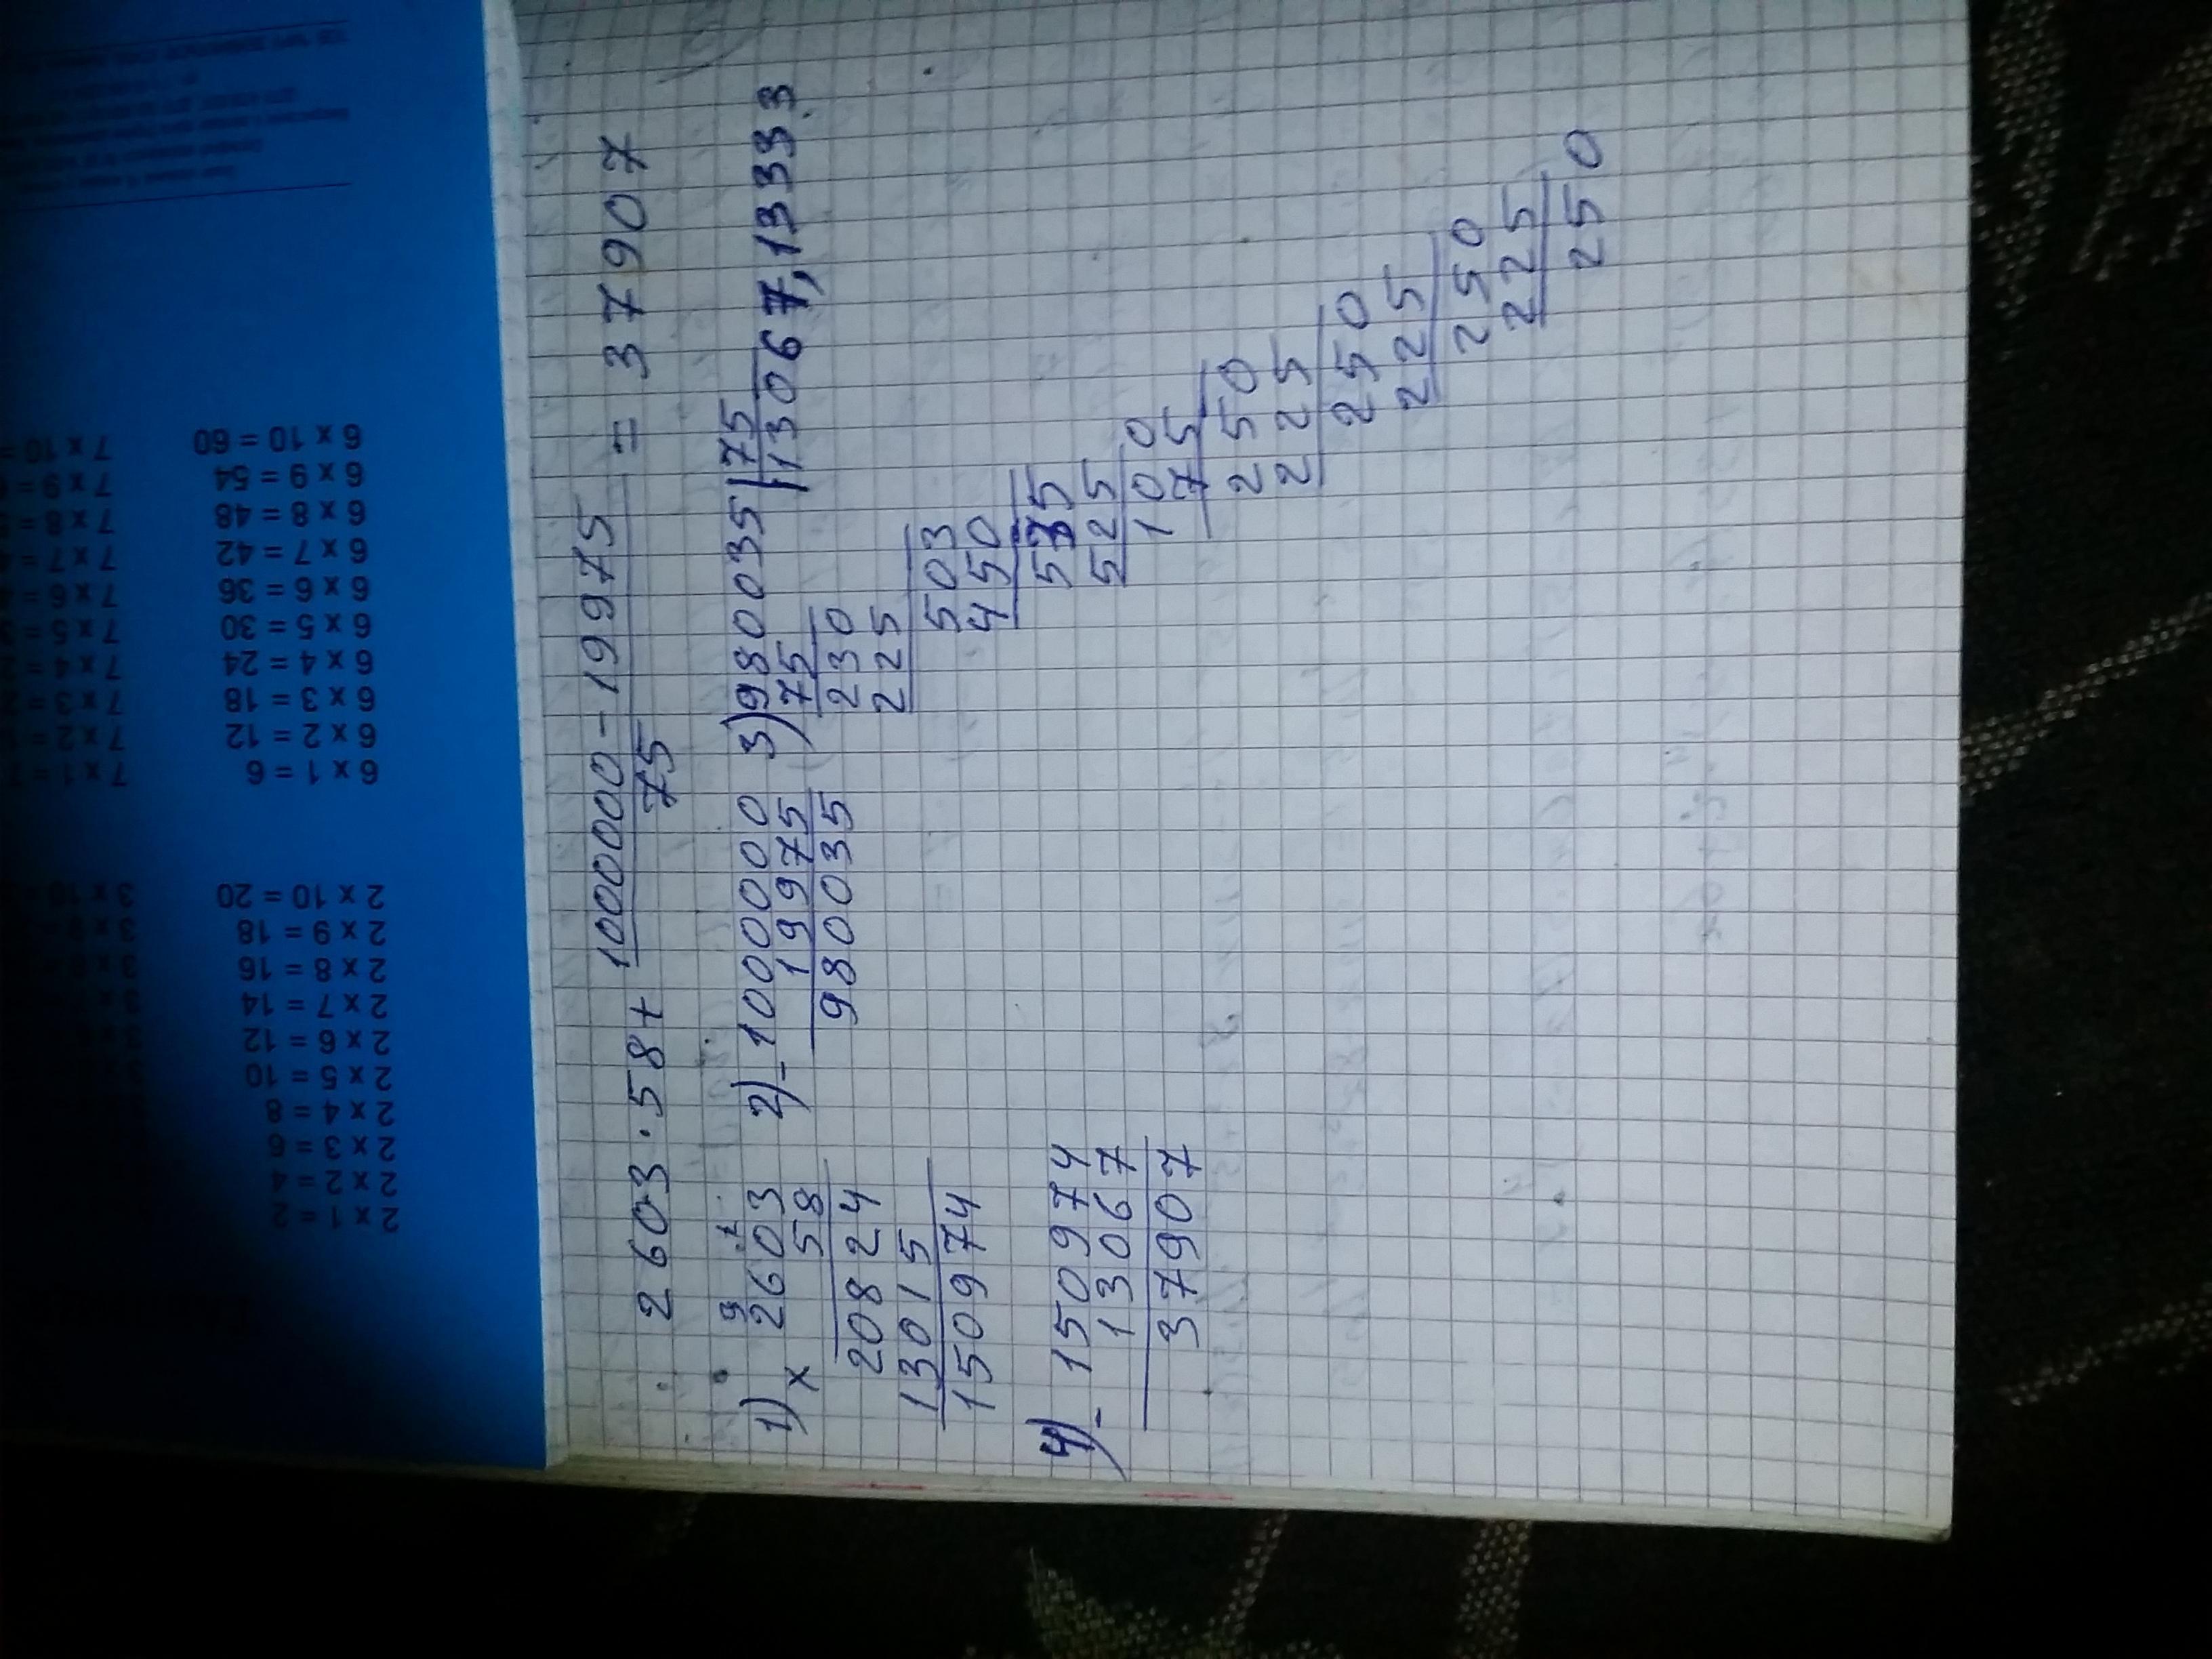 2603 · 58 + 1000000 - 19975 = 37907
75
1) × 2603
58
20824
13015
150974
2) - 1000000
19975
980035
3) 980035 | 75
13067,13333
75
230
225
503
450
535
525
100
75
250
225
250
225
250
225
250
4) - 150974
13067
37907
2 x 1 = 2
2 x 2 = 4
2 x 3 = 6
2 x 4 = 8
2 x 5 = 10
2 x 6 = 12
2 x 7 = 14
2 x 8 = 16
2 x 9 = 18
2 x 10 = 20
6 x 1 = 6
6 x 2 = 12
6 x 3 = 18
6 x 4 = 24
6 x 5 = 30
6 x 6 = 36
6 x 7 = 42
6 x 8 = 48
6 x 9 = 54
6 x 10 = 60
7 x 1 = 7
7 x 2 =
7 x 3 = 2
7 x 4 = 2
7 x 5 = 3
7 x 6 = 4
7 x 7 = 4
7 x 8 = 5
7 x 9 = 6
7 x 10 =